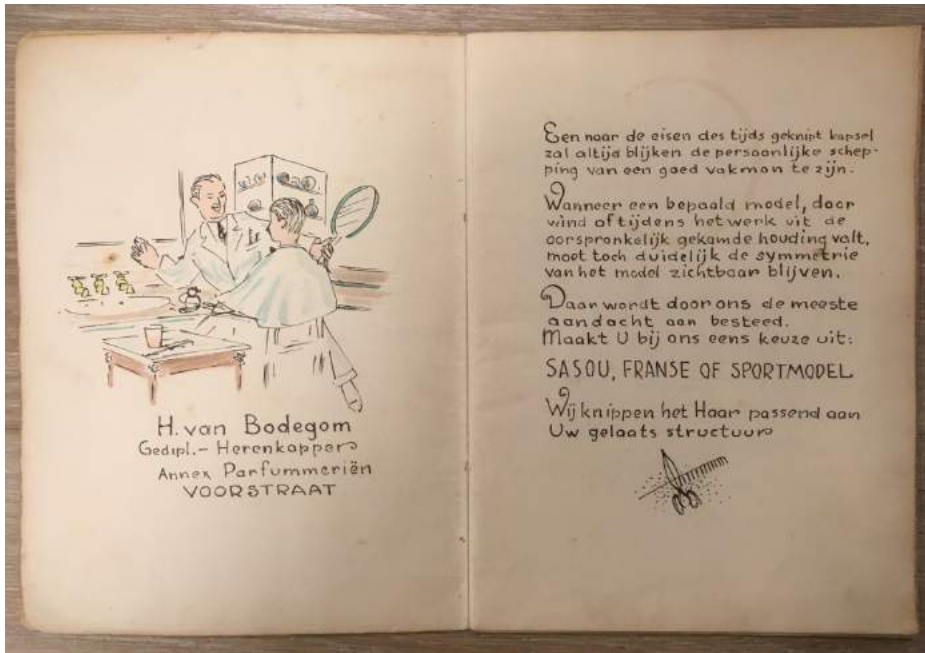 H. van Bodegom
Gedipl.- Herenkapper
Annex Parfummeriën
VOORSTRAAT
Een naar de eisen des tijds geknipt kapsel
zal altijd blijken de persoonlijke schep-
ping van een goed vakman te zijn.
Wanneer een bepaald model, door
wind of tijdens het werk uit de
oorspronkelijk gekamde houding valt,
moet toch duidelijk de symmetrie
van het model zichtbaar blijven.
Daar wordt door ons de meeste
aandacht aan besteed.
Maakt U bij ons eens keuze uit:
SASOU, FRANSE OF SPORTMODEL
Wij knippen het Haar passend aan
Uw gelaats structuur